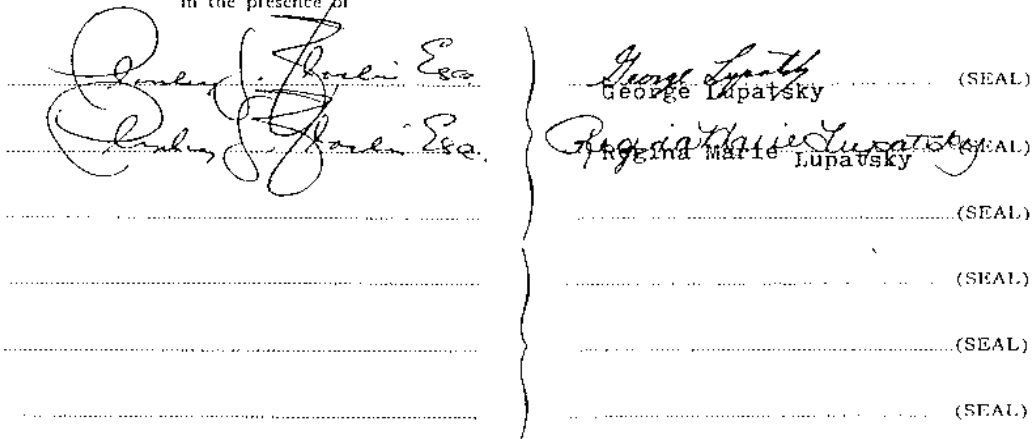 in the presence of
Esq. George Lupatsky (SEAL)
George Lupatsky
Esq. Regina Marie Lupatsky (SEAL)
Regina Marie Lupatsky
(SEAL)
(SEAL)
(SEAL)
(SEAL)